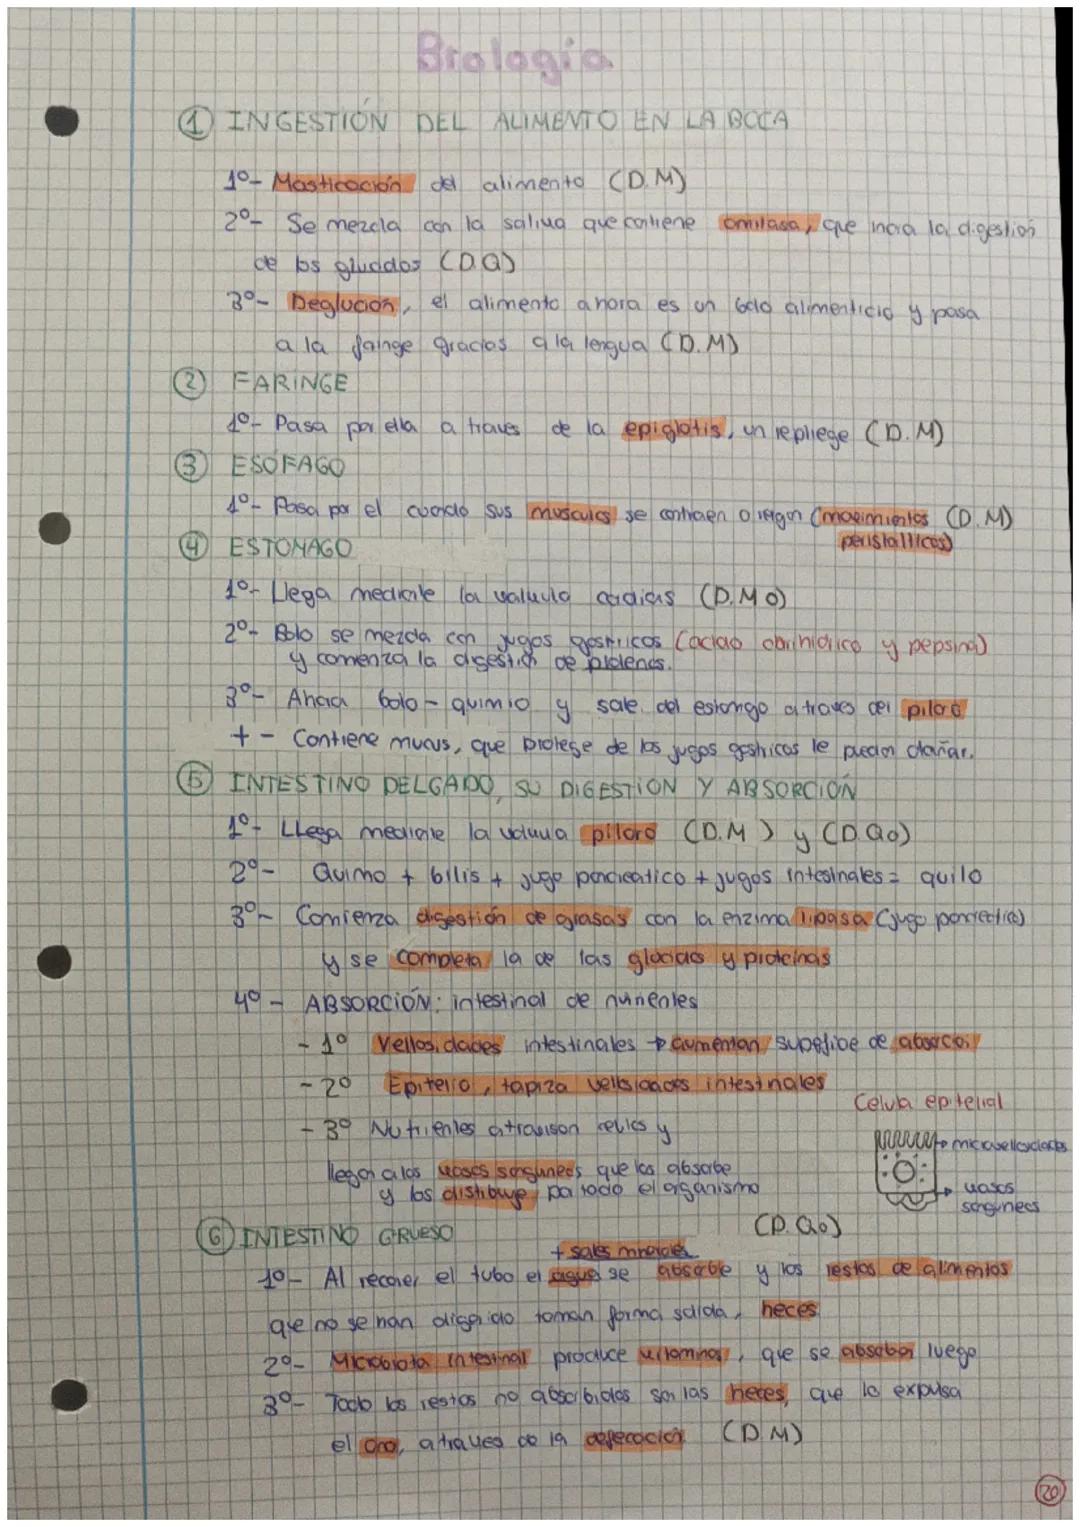 Biología
① INGESTIÓN DEL ALIMENTO EN LA BOCA
1º- Masticación del alimento (D.M)
2º- Se mezcla con la saliva que contiene amilasa, que inicia la digestión
de los glúcidos (D.Q)
3º- Deglución, el alimento ahora es un bolo alimenticio y pasa
a la faringe gracias a la lengua (D.M)
② FARINGE
1º- Pasa por ella a traves de la epiglotis, un repliege (D.M)
③ ESÓFAGO
1º- Pasa por el cuando sus musculos se contraen o relajan (movimientos (D.M)
peristalticos)
④ ESTOMAGO
1º- Llega mediante la valvula cardias (D.M)
2º- Bolo se mezcla con jugos gastricos (acido clorhidrico y pepsina)
y comenza la digestión de proteinas.
3º- Ahora bolo - quimio y sale del estomago a traves del piloro
+ - Contiene mucus, que protege de los jugos gastricos le puedan dañar.
⑤ INTESTINO DELGADO, SU DIGESTIÓN Y ABSORCIÓN
1º- LLega mediante la valvula piloro (D.M) y (D.Qo)
2º- Quimo + bilis + jugo pancreatico + jugos intestinales = quilo
3º- Comienza digestión de grasas con la enzima lipasa (jugo pancreatico)
y se completa la de las glucidos y proteinas
4º - ABSORCIÓN: intestinal de nutrientes
- 1º Vellosidades intestinales → aumentan superficie de absorcion
- 2º Epitelio, tapiza vellosidades intestinales
Celula epitelial
- 3º Nutrientes atraviesan celulas y
→ microvellosidades
llegan a los vasos sanguineos, que los absorbe
y los distribuye por todo el organismo
→ vasos
sanguineos
(D.Qo)
⑥ INTESTINO GRUESO
+ sales minerales
1º- Al recorrer el tubo el agua se absorbe y los restos de alimentos
que no se han digerido toman forma solida, heces
2º- Microbiota intestinal produce vitaminas, que se absorben luego
3º- Todo los restos no absorbidos son las heces, que lo expulsa
el ano, a traves de la defecación (D.M)
20